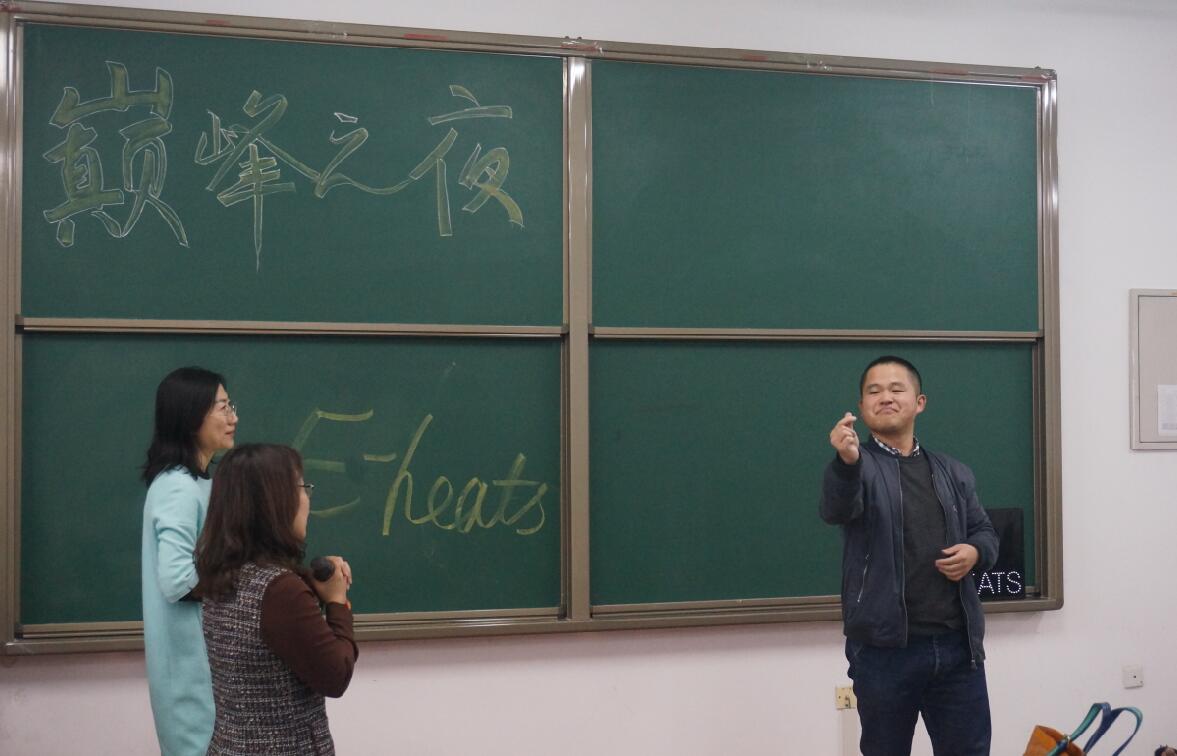 巅峰之夜
E-heats
EATS